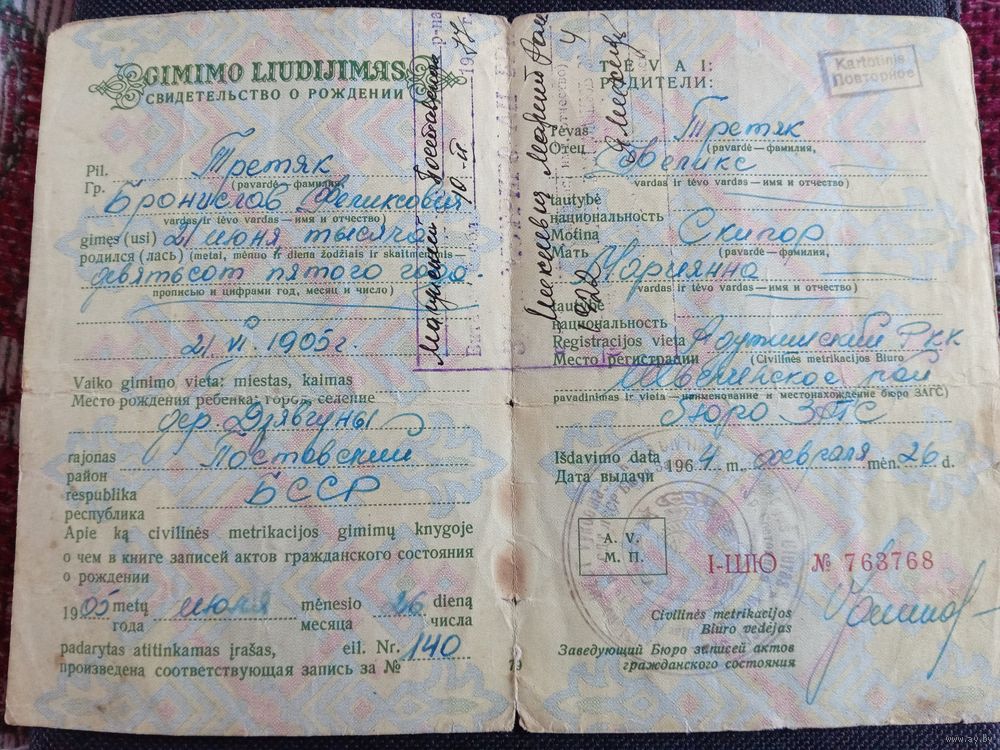 GIMIMO LIUDIJIMAS
СВИДЕТЕЛЬСТВО О РОЖДЕНИИ
Pil.
Гр.
Третяк
(pavardė — фамилия,
Бронислав Феликсович
vardas ir tėvo vardas — имя и отчество)
gimęs (usi) 21 июня тысяча
родился (лась) (metai, mėnuo ir diena žodžiais ir skaitmenimis —
девятьсот пятого года.
прописью и цифрами год, месяц и число)
21 VI. 1905 г.
Vaiko gimimo vieta: miestas, kaimas
Место рождения ребенка: город, селение
дер. Дзявгуны
rajonas
район
Поставский
respublika
республика
БССР
Apie ką civilinės metrikacijos gimimų knygoje
о чем в книге записей актов гражданского состояния
о рождении
1905 metų июля mėnesio 26 dieną
года месяца числа
padarytas atitinkamas įrašas, eil. Nr. 140
произведена соответствующая запись за №
79
р-на
1977 г.
TĖVAI:
РОДИТЕЛИ:
Kartotinis
Повторное
Tėvas
Отец
Третяк
(pavardė — фамилия,
Феликс
vardas ir tėvo vardas — имя и отчество)
tautybė
национальность
Motina
Мать
Скипор
(pavardė — фамилия,
Марьянна
vardas ir tėvo vardas — имя и отчество)
tautybė
национальность
Registracijos vieta
Место регистрации
(Civilinės metrikacijos Biuro
Швенчёнское рай
pavadinimas ir vieta — наименование и местонахождение бюро ЗАГС)
бюро ЗАГС
Išdavimo data
Дата выдачи
1964 m. февраля mėn. 26 d.
A. V.
М. П.
I-ШЮ № 763768
Civilinės metrikacijos
Biuro vedėjas
Заведующий Бюро записей актов
гражданского состояния